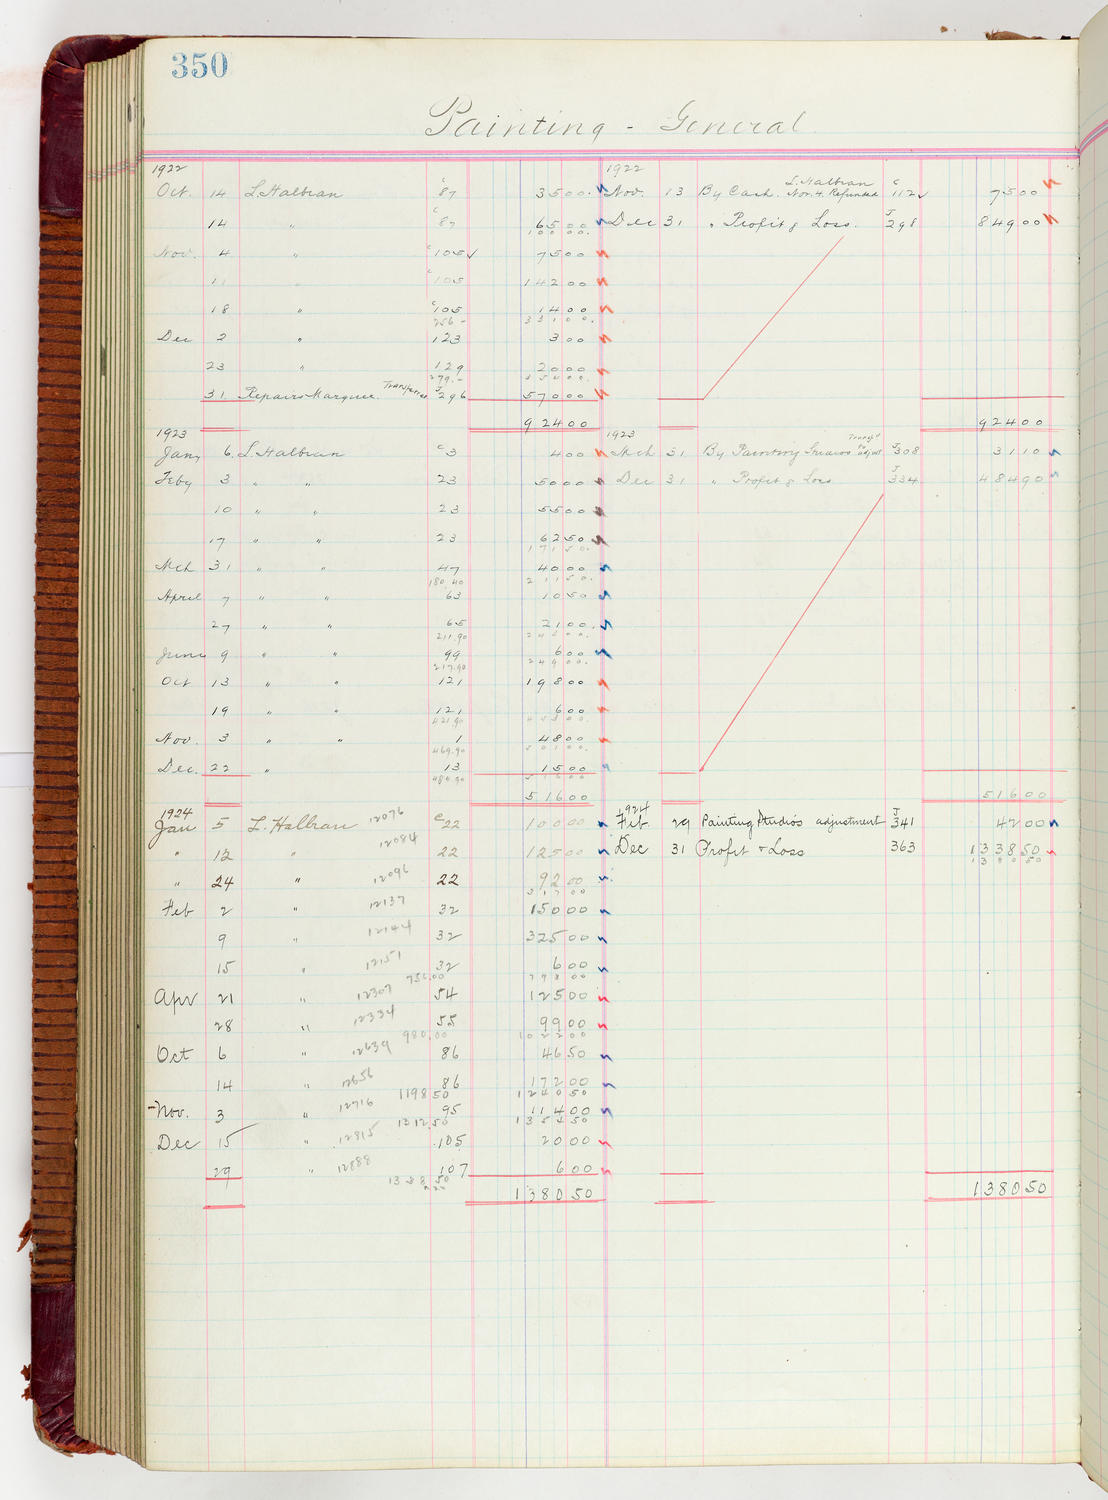 350
Painting - General
1922 1922
Oct. 14 L. Halbran c 87 35 00 Nov. 13 By Cash. L. Halbran Nov. 4. Refunded c 112 ✓ 75 00
14 " c 87 65 00 Dec 31 " Profit & Loss. J 298 849 00
100 00.
Nov. 4 " c 105 ✓ 75 00
11 " c 105 142 00
18 " c 105 14 00
256 - 331 00.
Dec 2 " 123 3 00
23 " 129 20 00
279.- 354 00.
31. Repairs Marquee. Transferred J 296 570 00
924 00 924 00
1923 1923
Jany 6. L. Halbran c 3 4 00 Mch 31 By Painting Studios J 308 31 10
Feby 3 " " 23 50 00 Dec 31 " Profit & Loss J 334 484 90
10 " " 23 55 00
17 " " 23 62 50
171 50.
Mch 31 " " 47 40 00
180.40 211 50.
April 7 " " 63 10 50
27 " " 65 21 00.
211.90 243 00.
June 9 " " 99 6 00
217.90 249 00.
Oct 13 " " 121 198 00
19 " " 121 6 00
421.90 453 00.
Nov. 3 " " 1 48 00
469.90 501 00.
Dec. 22 " 13 15 00
484.90 516 00
516 00 516 00
1924 1924
Jan 5 L. Halbran 12076 c 22 100 00 Feb 29 Painting Studios adjustment J 341 42 00
" 12 " 12084 22 125 00 Dec 31 Profit & Loss 363 1338 50
1380 50
" 24 " 12096 22 92 00
317 00
Feb 2 " 12137 32 150 00
9 " 12144 32 325 00
15 " 12151 32 6 00
756.00 798 00
Apr 21 " 12307 54 125 00
28 " 12334 55 99 00
980.00 1022 00
Oct 6 " 12639 86 46 50
14 " 12656 86 172 00
1198 50 1240 50
Nov. 3 " 12716 95 114 00
1312.50 1354 50
Dec 15 " 12815 105 20 00
29 " 12888 107 6 00
1338 50
1380 50 1380 50